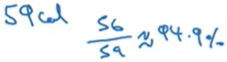 59 cal
56/59 ≈ 94.9%